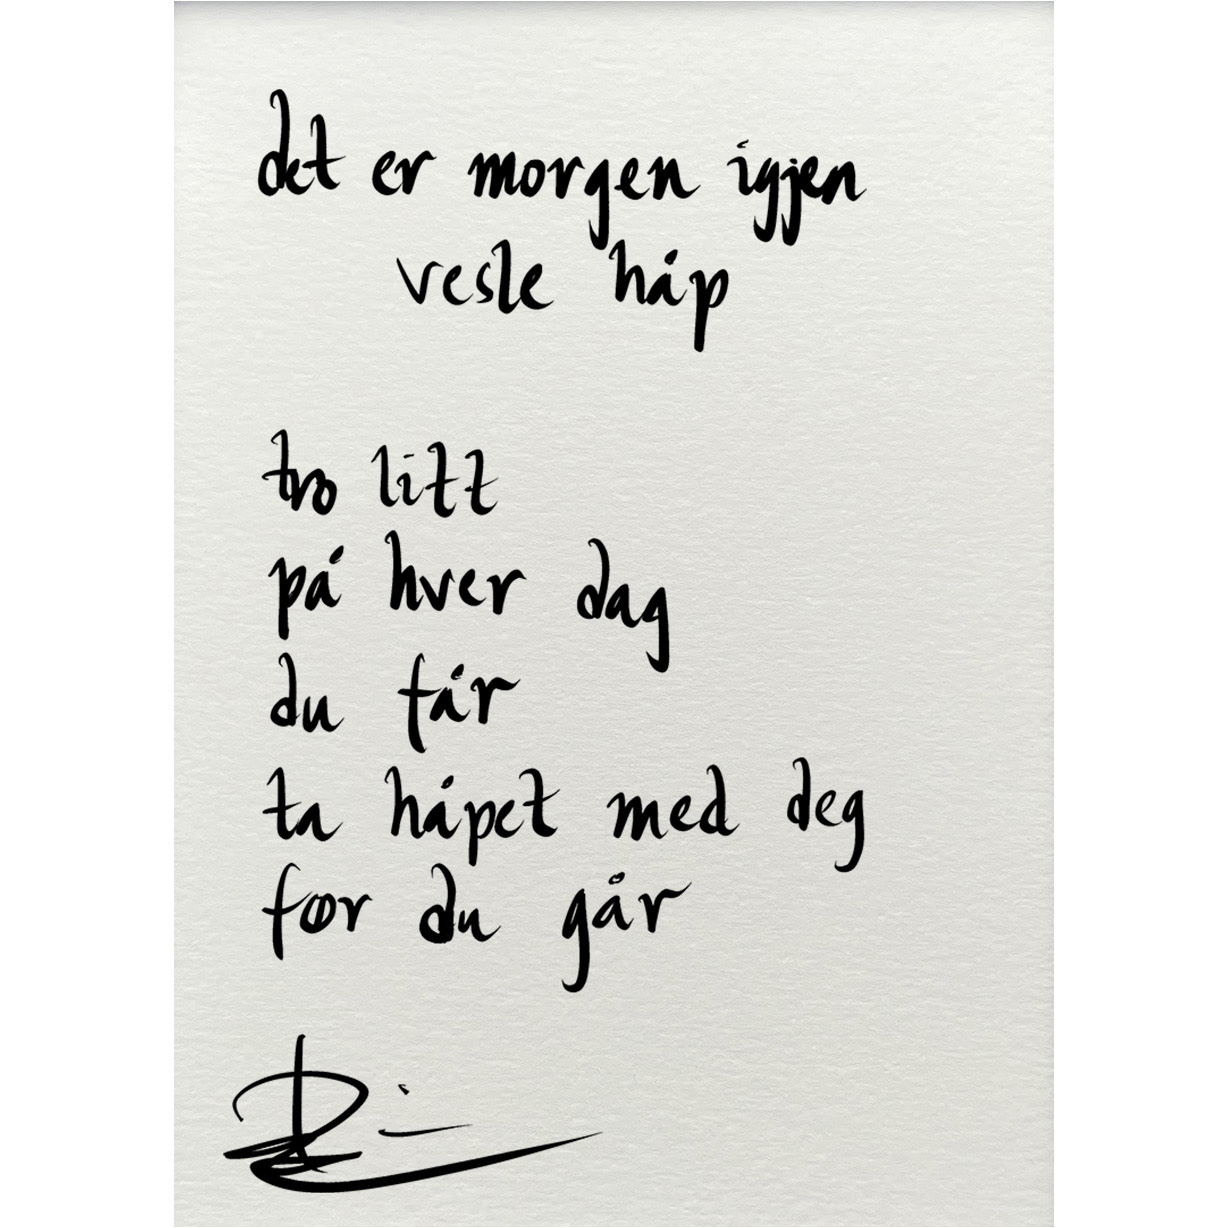 det er morgen igjen
vesle håp
tro litt
på hver dag
du får
ta håpet med deg
før du går